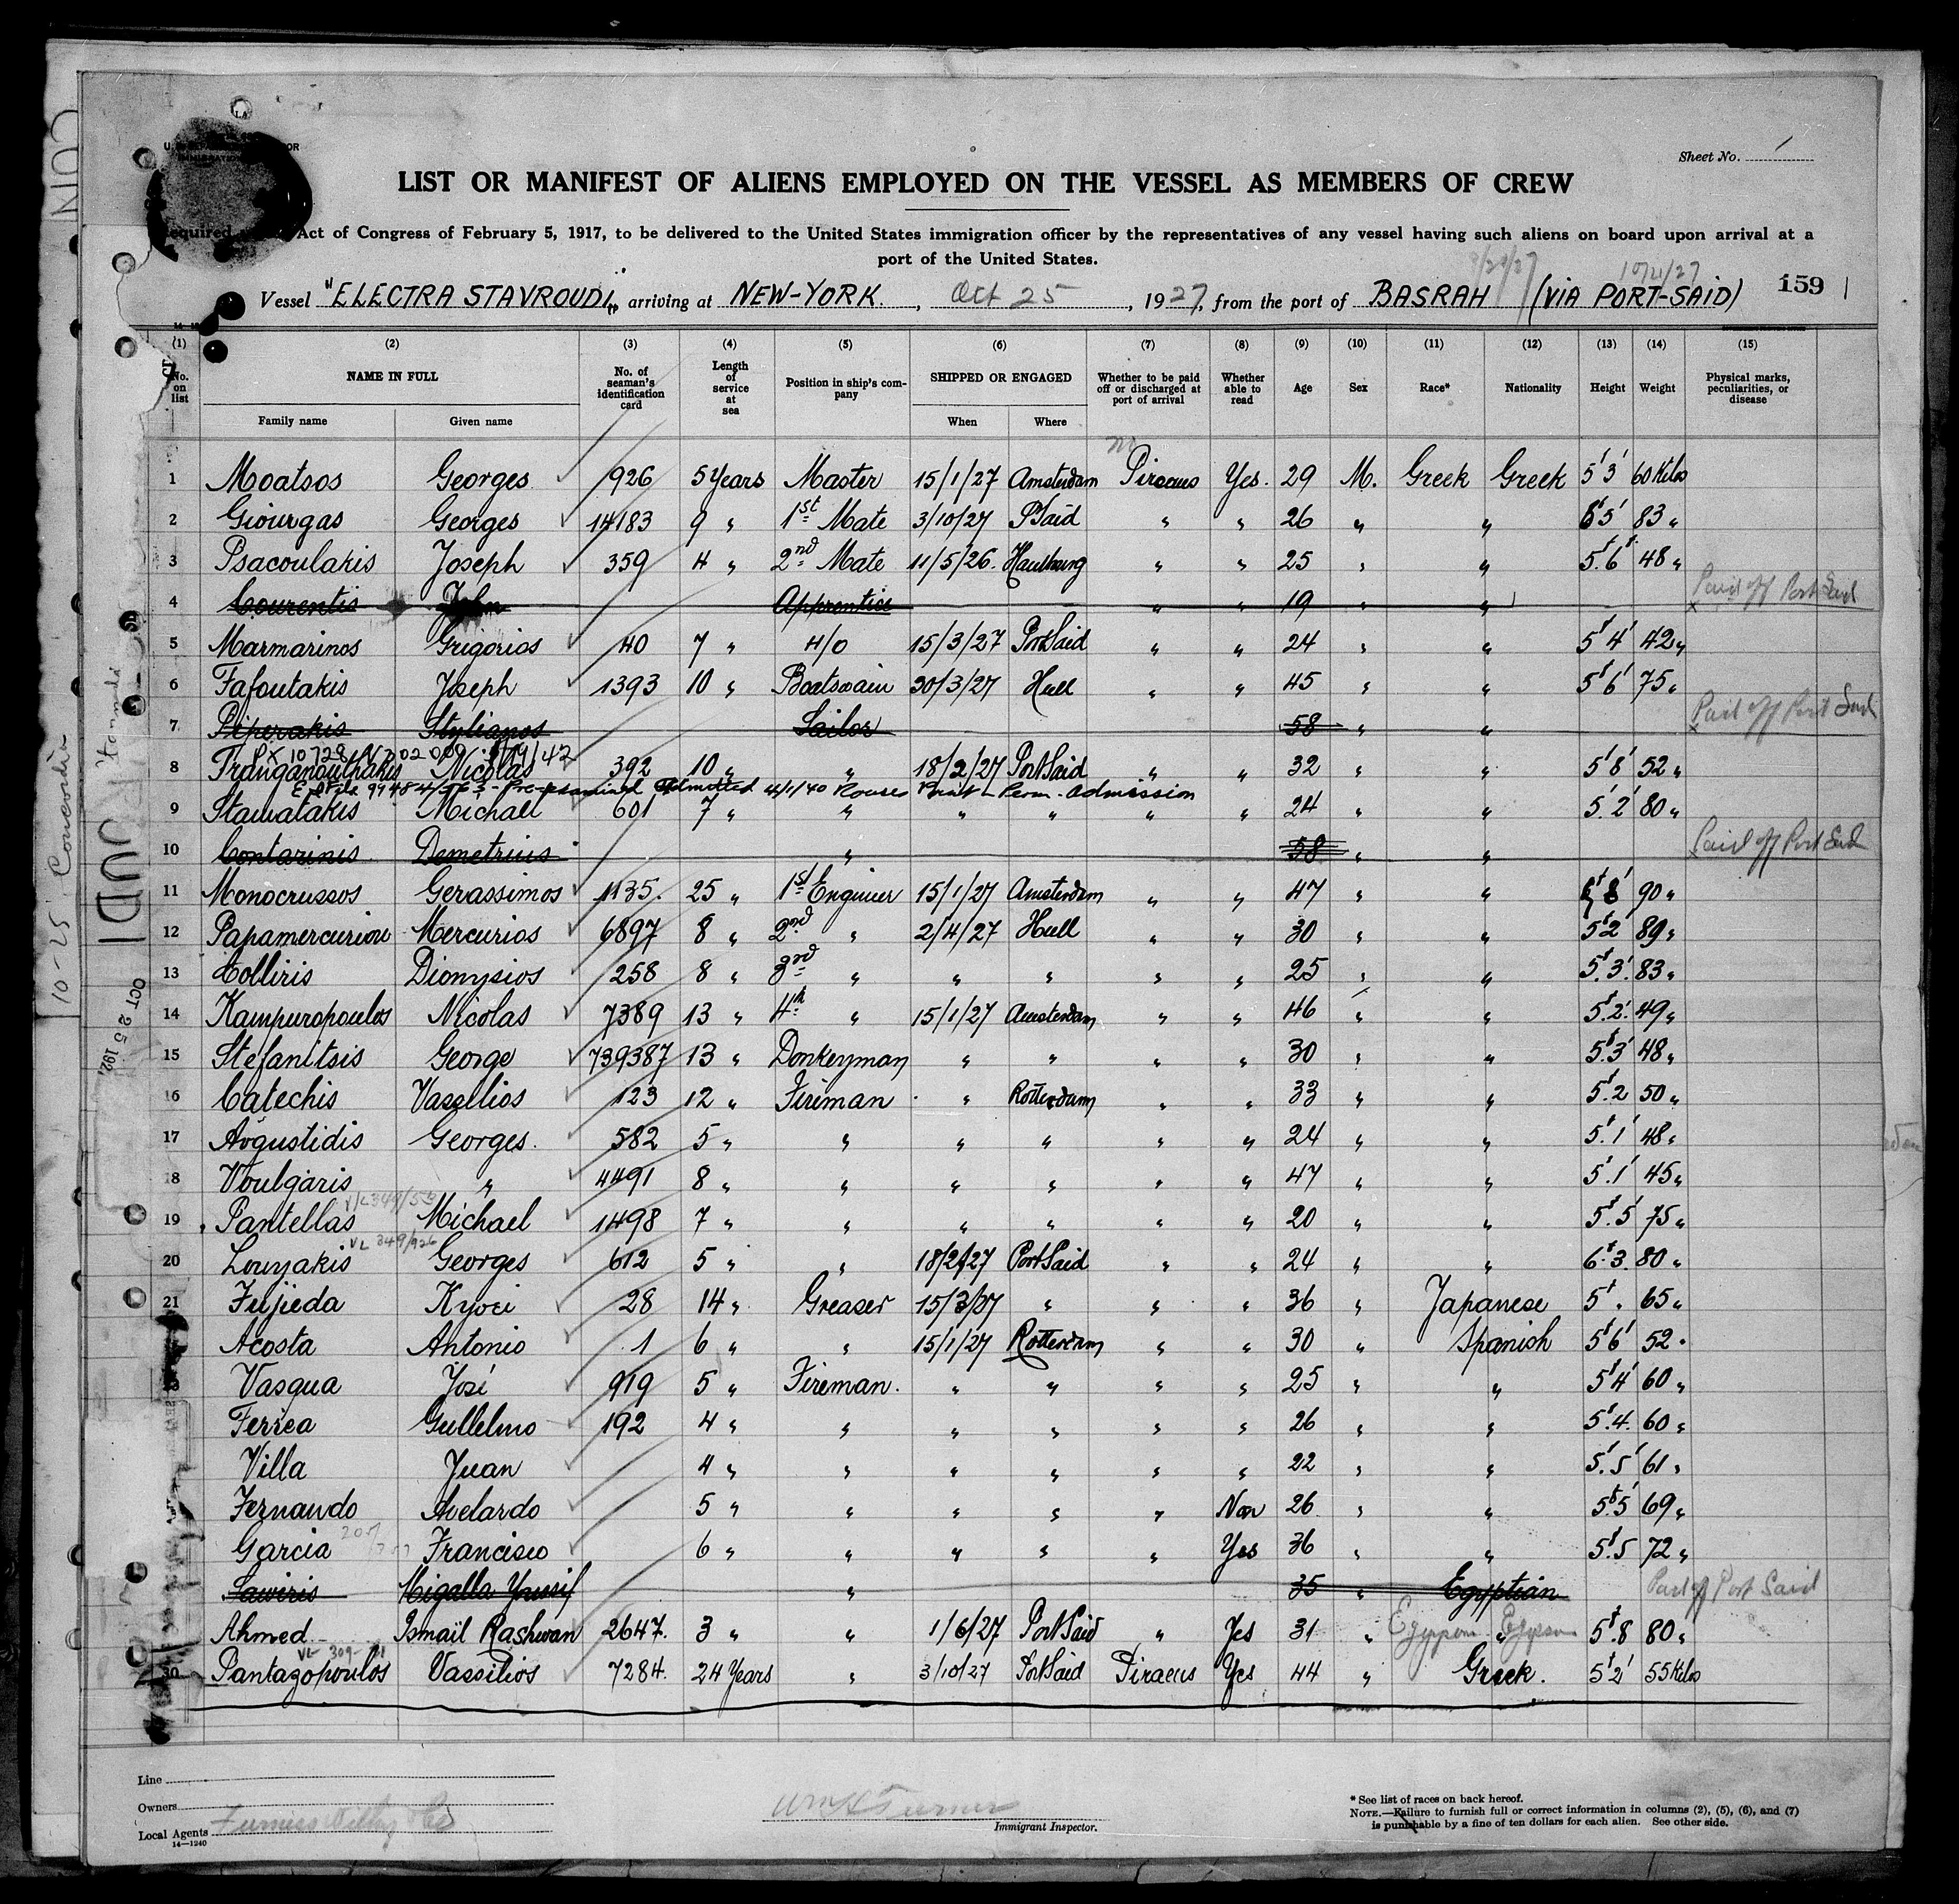 Sheet No. 1
LIST OR MANIFEST OF ALIENS EMPLOYED ON THE VESSEL AS MEMBERS OF CREW
Act of Congress of February 5, 1917, to be delivered to the United States immigration officer by the representatives of any vessel having such aliens on board upon arrival at a
port of the United States.
Vessel "ELECTRA STAVROUDI" arriving at NEW-YORK, Oct 25, 1927, from the port of BASRAH (VIA PORT-SAID) 159
10/21/27
(1) (2) (3) (4) (5) (6) (7) (8) (9) (10) (11) (12) (13) (14) (15)
No. on list NAME IN FULL Family name Given name No. of seaman's identification card Length of service at sea Position in ship's company SHIPPED OR ENGAGED When Where Whether to be paid off or discharged at port of arrival Whether able to read Age Sex Race* Nationality Height Weight Physical marks, peculiarities, or disease
1 Moatsos Georges 926 5 Years Master 15/1/27 Amsterdam Piraeus Yes. 29 M. Greek Greek 5' 3' 60 Kilos
2 Giourgas Georges 14183 9 " 1st Mate 3/10/27 PSaid " " 26 " " 5' 83 "
3 Psacoulakis Joseph 359 4 " 2nd Mate 11/5/26. Hamburg " " 25 " " 5.6 48 "
4 Courentis John Apprentice " " 19 " " Paid off Port Said
5 Marmarinos Grigorios 40 7 " H/O 15/3/27 PortSaid " " 24 " " 5' 4' 42 "
6 Fafoutakis Joseph 1393 10 " Boatswain 30/3/27 Hull " " 45 " " 5' 6' 75 "
7 Piperakis Stylianos Sailor 58 " " Paid off Port Said
8 Franganouthakis Nicolas 392 10 " " 18/2/27 PortSaid " " 32 " " 5' 8' 52 "
Pre-examined Admitted 4/1/40 Rouses Point - Perm. Admission
9 Stamatakis Michael 601 7 " " " " " " 24 " " 5' 2' 80 "
10 Contarinis Demetrius " 58 " " Paid off Port Said
11 Monocrussos Gerassimos 1135. 25 " 1st Engineer 15/1/27 Amsterdam " " 47 " " 8' 90 "
12 Papamercuriou Mercurios 6897 8 " 2nd " 2/4/27 Hull " " 30 " " 5' 2' 89 "
13 Colliris Dionysios 258 8 " 3rd " " " " " 25 " " 5' 3' 83 "
14 Kampuropoulos Nicolas 7389 13 " 4th " 15/1/27 Amsterdam " " 46 " " 5' 2' 49 "
15 Stefanitsis George 739387 13 " Donkeyman " " " " 30 " " 5' 3' 48 "
16 Catechis Vassilios 123 12 " Fireman " Rotterdam " " 33 " " 5' 2 50 "
17 Avgustidis Georges. 582 5 " " " " " " 24 " " 5' 1' 48 "
18 Voulgaris " 4491 8 " " " " " " 47 " " 5' 1' 45 "
19 Pantellas Michael 1498 7 " " " " " " 20 " " 5' 5' 75 "
VL 349/926
20 Louyakis Georges 612 5 " " 18/2/27 PortSaid " " 24 " " 6' 3. 80 "
21 Fujieda Kyoei 28 14 " Greaser 15/3/27 " " " 36 " Japanese 5' " 65 "
Acosta Antonio 1 6 " " 15/1/27 Rotterdam " " 30 " Spanish 5' 6' 52 "
Vasqua José 919 5 " Fireman. " " " " 25 " " 5' 4' 60 "
Ferrea Gullelmo 192 4 " " " " " " 26 " " 5' 4. 60 "
Villa Juan 4 " " " " " " 22 " " 5' 5' 61 "
Fernando Avelardo 5 " " " " " Non 26 " " 5' 5' 69 "
Garcia Francisco 6 " " " " " Yes 36 " " 5' 5 72 "
Sawiris Migalla Yousif " 35 " Egyptian Paid off Port Said
Ahmed Ismaïl Rashwan 2647. 3 " " 1/6/27 PortSaid " Yes 31 " " 5' 8 80 "
30 Pantazopoulos Vassilios 7284. 24 Years " 3/10/27 PortSaid Piraeus Yes 44 " Greek. 5' 2' 55 Kilos
OCT 25 192
10-25 Concordia
Line
Owners
Local Agents Furness Withy & Co
14—1240
Wm H Turner
Immigrant Inspector.
* See list of races on back hereof.
NOTE.—Failure to furnish full or correct information in columns (2), (5), (6), and (7)
is punishable by a fine of ten dollars for each alien. See other side.